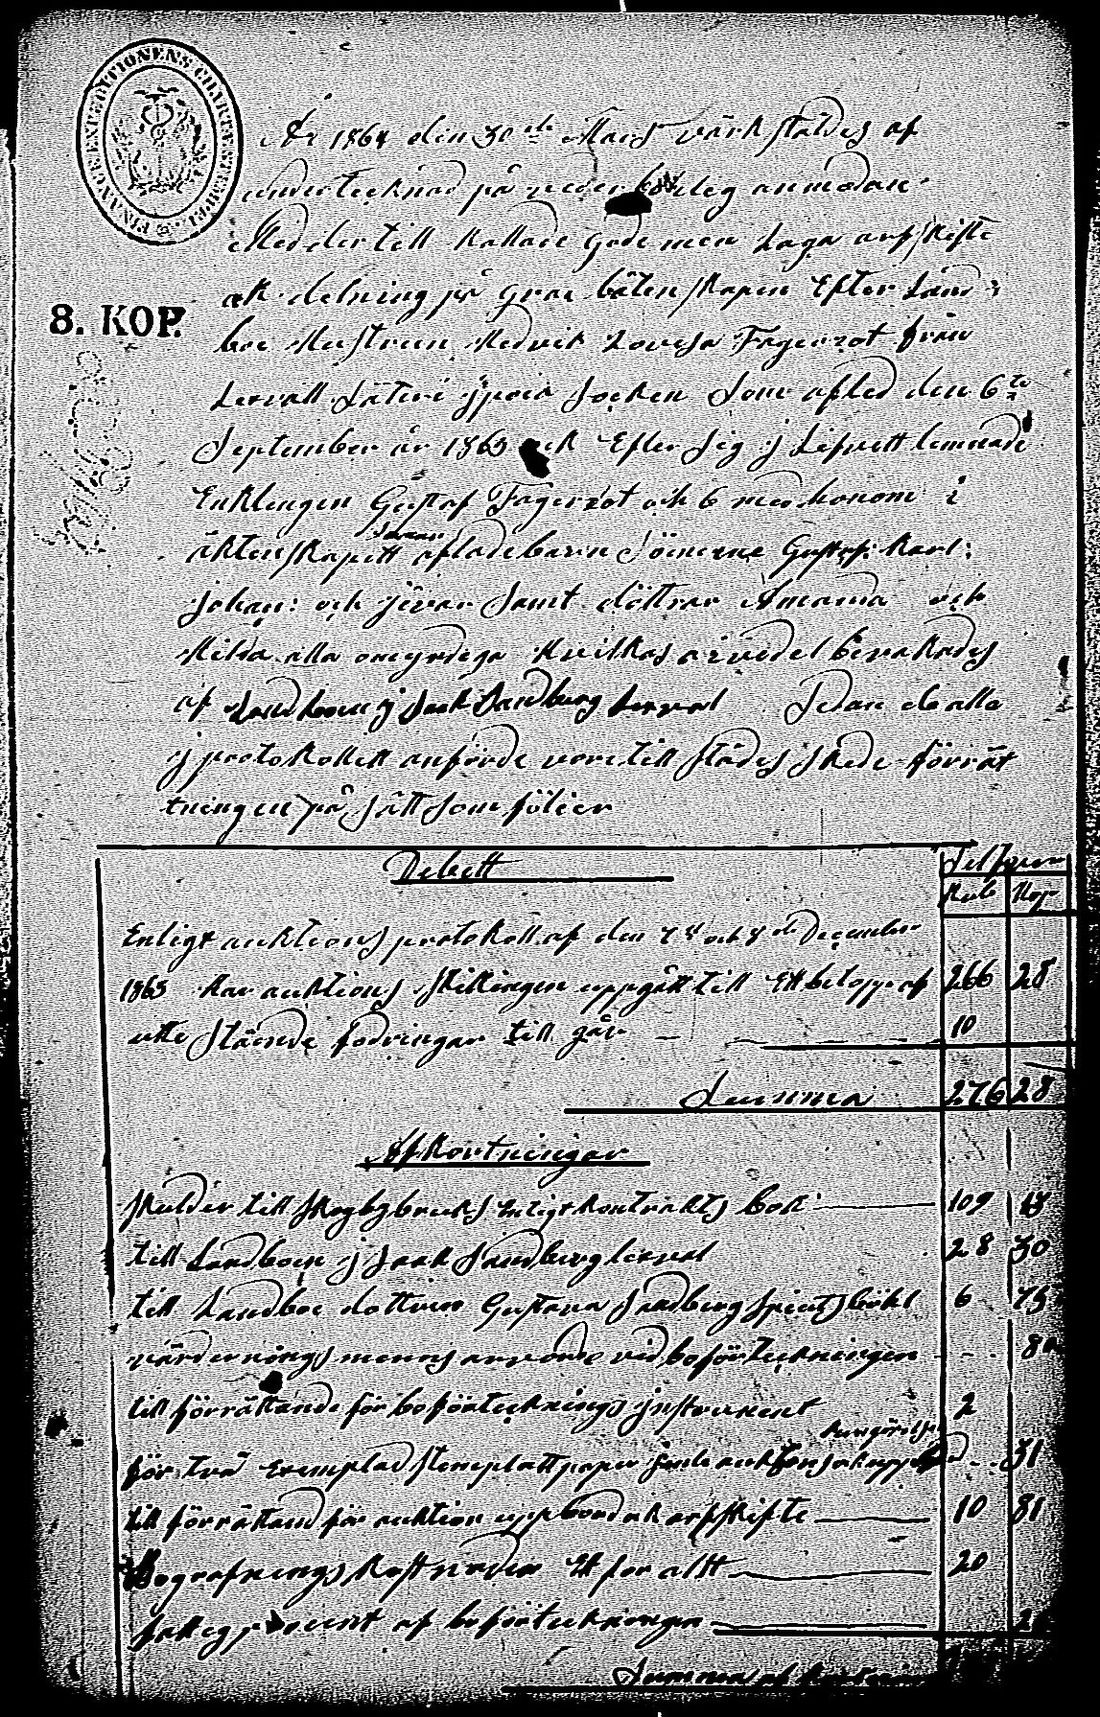 FINANCE EXPEDITIONENS CHARTÆ STERBEL.
År 1864 den 30 de Mars värkstäldes af
undertecknad på anmodan
Med der till kallade gode men Laga arfskifte
ok delning på qvar låtenskapen Efter Land:
boe Hustrun Hedvik Lovisa Fagerrot från
8. KOP.
Lexvall Säteri socken Som afled den 6 te
September år 1863 ok Efter Sig j Lifvett lemnade
Enklingen Gustaf Fagerrot och 6 med honom i
äktenskapett aflade barn Sönerne Gustaf: Karl:
Johan: och jövan Samt döttrar Amanda och
Hilda alla omyndiga Hvilkas arvedel bevakades
af Landboen j Jsak Sandberg Lexval Sedan de alla
j protokollett anförde vore till städes skede förrät
tningen på sätt som följer
Debett
Rub Kop
Enligt auktions protokoll af den 7 de och 8 de December
1863 Har auktions Skillingen uppgått till Ett belopp af 266 28
utte Stående fodringar till går 10
Summa 276 28
Afkortningar
Skulder till Skogbybruks Enligt kontrakts bok 109 13
till Landboen j Jsak Sandberg Lexval 28 30
till Landboe dottren Gustava Sandberg 6 75
värdernings menas arvode vid boförteckningen
till förrättande för boförtecknings jnstrument 2
för två Exemplar Stemplatt paper 31
till förrättand för auktion uppbörd ok arfskifte 10 81
Begrafnings kostnader Ett för allt 20
fattig procent af boförteckningen
Summa af kortnin